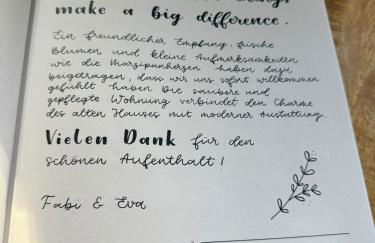 make a big difference.
Ein freundlicher Empfang, frische
Blumen und kleine Aufmerksamkeiten
wie die Marzipanherzen haben dazu
beigetragen, dass wir uns sofort willkommen
gefühlt haben. Die saubere und
gepflegte Wohnung verbindet den Charme
des alten Hauses mit moderner Austattung.
Vielen Dank für den
schönen Aufenthalt!
Fabi & Eva